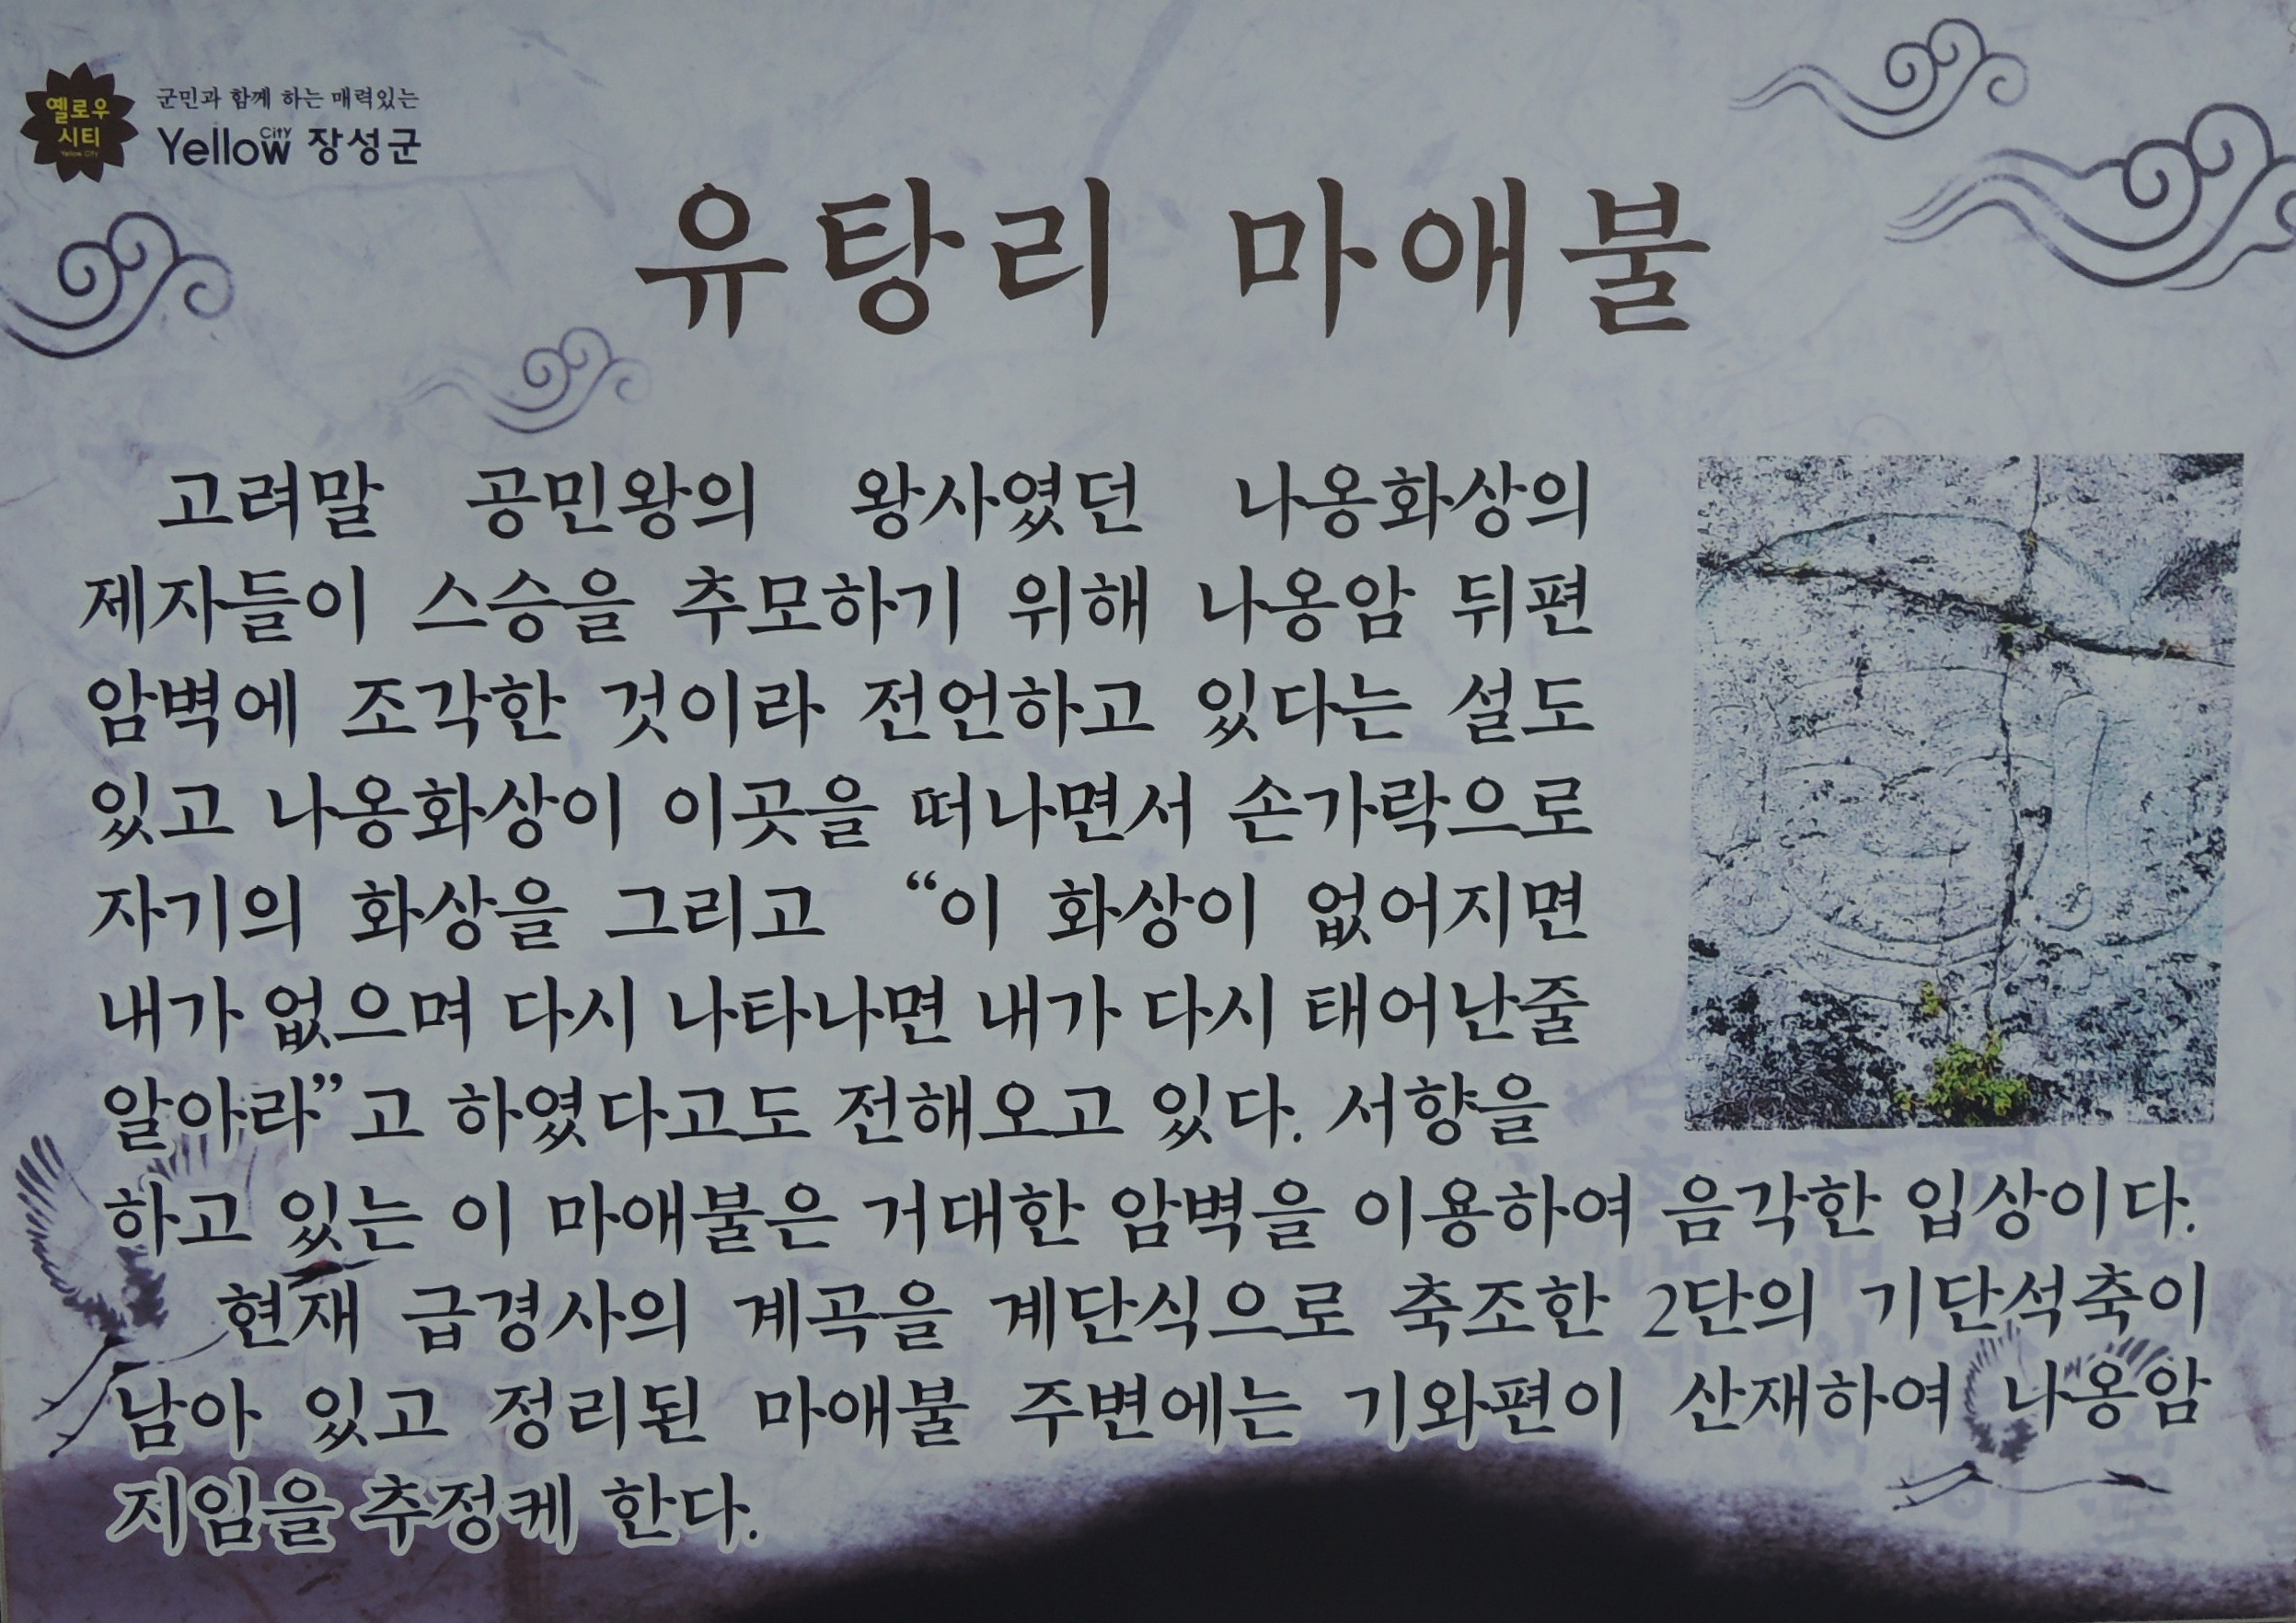 옐로우
시티
Yellow City
군민과 함께 하는 매력있는
Yellow City 장성군
유탕리 마애불
고려말 공민왕의 왕사였던 나옹화상의
제자들이 스승을 추모하기 위해 나옹암 뒤편
암벽에 조각한 것이라 전언하고 있다는 설도
있고 나옹화상이 이곳을 떠나면서 손가락으로
자기의 화상을 그리고 “이 화상이 없어지면
내가 없으며 다시 나타나면 내가 다시 태어난줄
알아라”고 하였다고도 전해오고 있다. 서향을
하고 있는 이 마애불은 거대한 암벽을 이용하여 음각한 입상이다.
현재 급경사의 계곡을 계단식으로 축조한 2단의 기단석축이
남아 있고 정리된 마애불 주변에는 기와편이 산재하여 나옹암
지임을 추정케 한다.